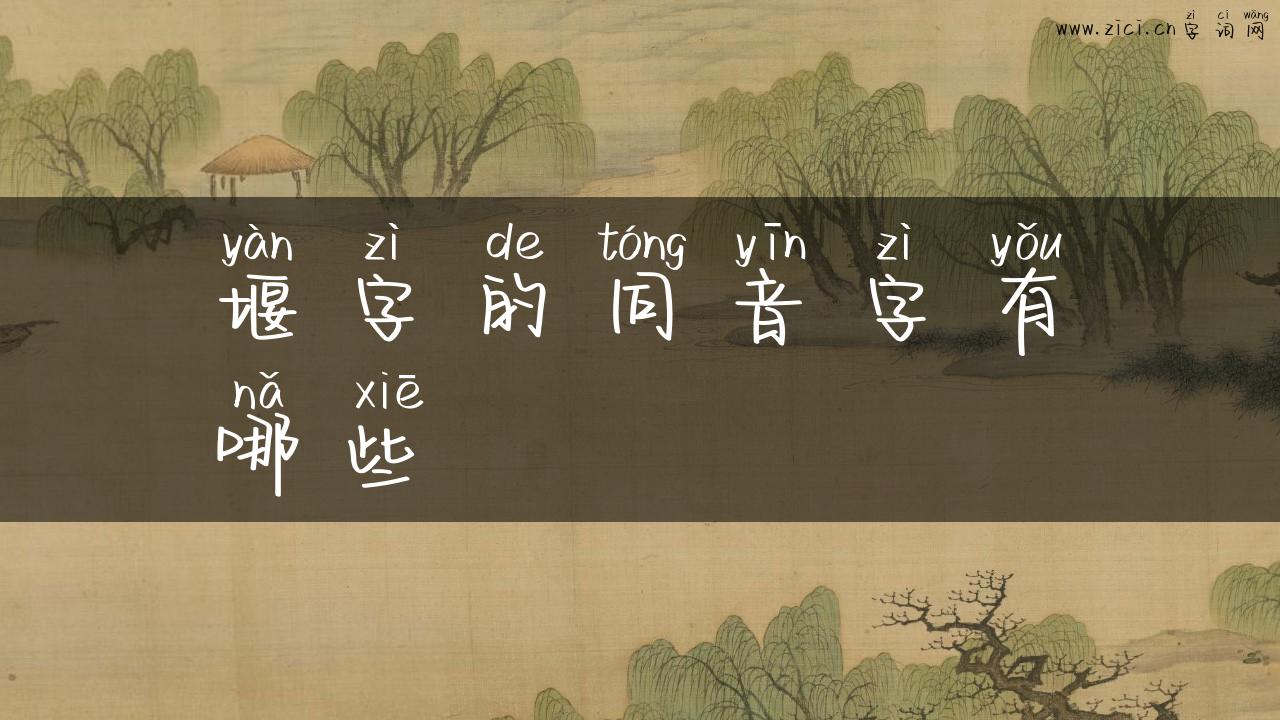 zì cí wǎng
www.zici.cn 字词网
yàn zì de tóng yīn zì yǒu
堰字的同音字有
nǎ xiē
哪些